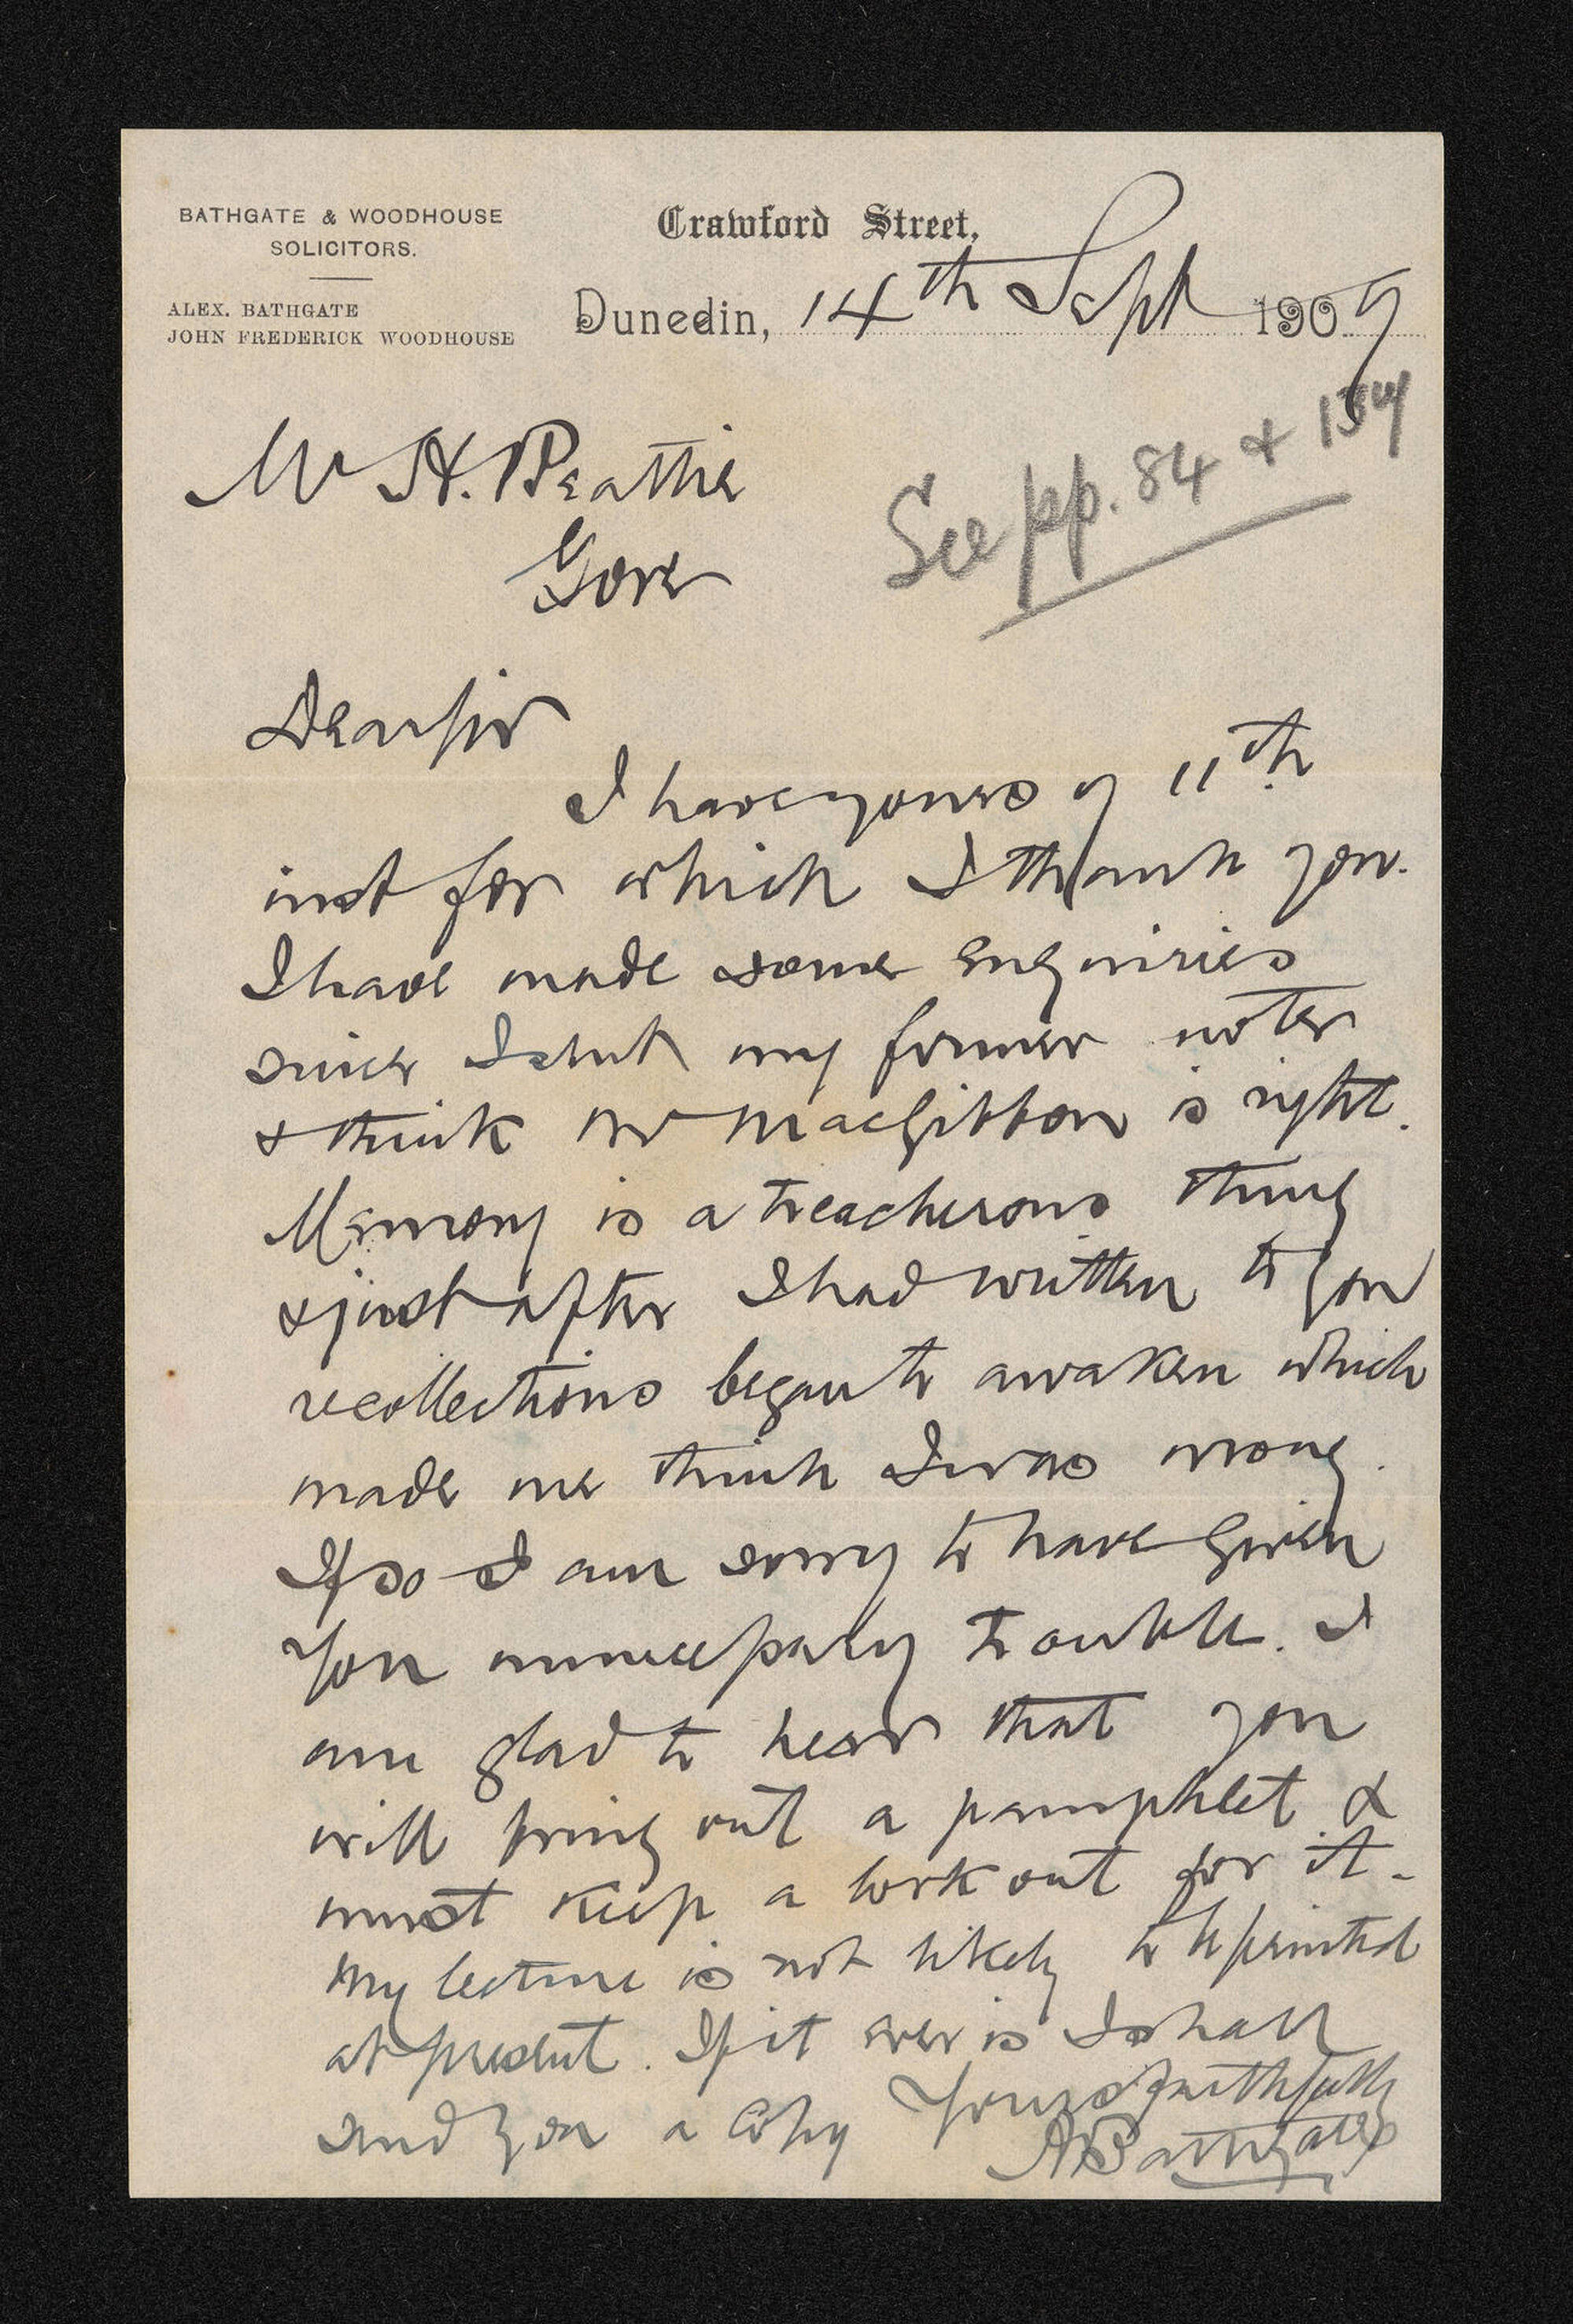 BATHGATE & WOODHOUSE
SOLICITORS.
ALEX. BATHGATE
JOHN FREDERICK WOODHOUSE
Crawford Street,
Dunedin, 14th Sept 1909
See pp. 84 &
Mr H. Beattie
Gore
Dear Sir
I have yours of 11th
inst for which I thank you.
I have made some enquiries
since I sent my former note
& think Mr MacGibbon is right.
Memory is a treacherous thing
& just after I had written to you
recollections began to awaken which
made me think I was wrong.
If so I am sorry to have given
you unnecessary trouble. I
am glad to hear that you
will bring out a pamphlet &
must keep a look out for it.
My lecture is not likely to be printed
at present. If it ever is I shall
send you a copy
Yours faithfully
A Bathgate